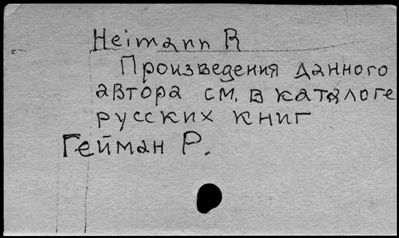 Heimann R
Произведения данного
автора см. в каталоге
русских книг
Гейман Р.